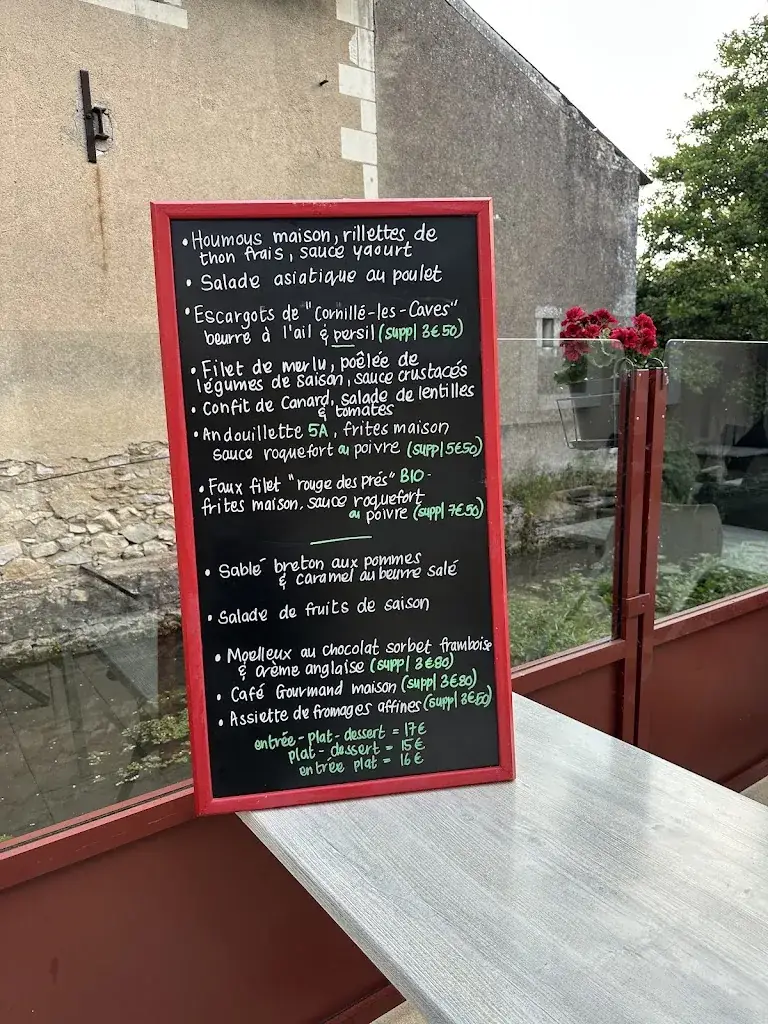 • Houmous maison, rillettes de
thon frais, sauce yaourt
• Salade asiatique au poulet
• Escargots de "Cornillé-les-Caves"
beurre à l'ail & persil (suppl 3€50)
• Filet de merlu, poêlée de
légumes de saison, sauce crustacés
• Confit de Canard, salade de lentilles
& tomates
• Andouillette 5A, frites maison
sauce roquefort ou poivre (suppl 5€50)
• Faux filet "rouge des prés" BIO -
frites maison, sauce roquefort
ou poivre (suppl 7€50)
• Sablé breton aux pommes
& caramel au beurre salé
• Salade de fruits de saison
• Moelleux au chocolat sorbet framboise
& crème anglaise (suppl 3€80)
• Café Gourmand maison (suppl 3€80)
• Assiette de fromages affines (suppl 3€50)
entrée-plat-dessert = 17€
plat-dessert = 15€
entrée plat = 16€